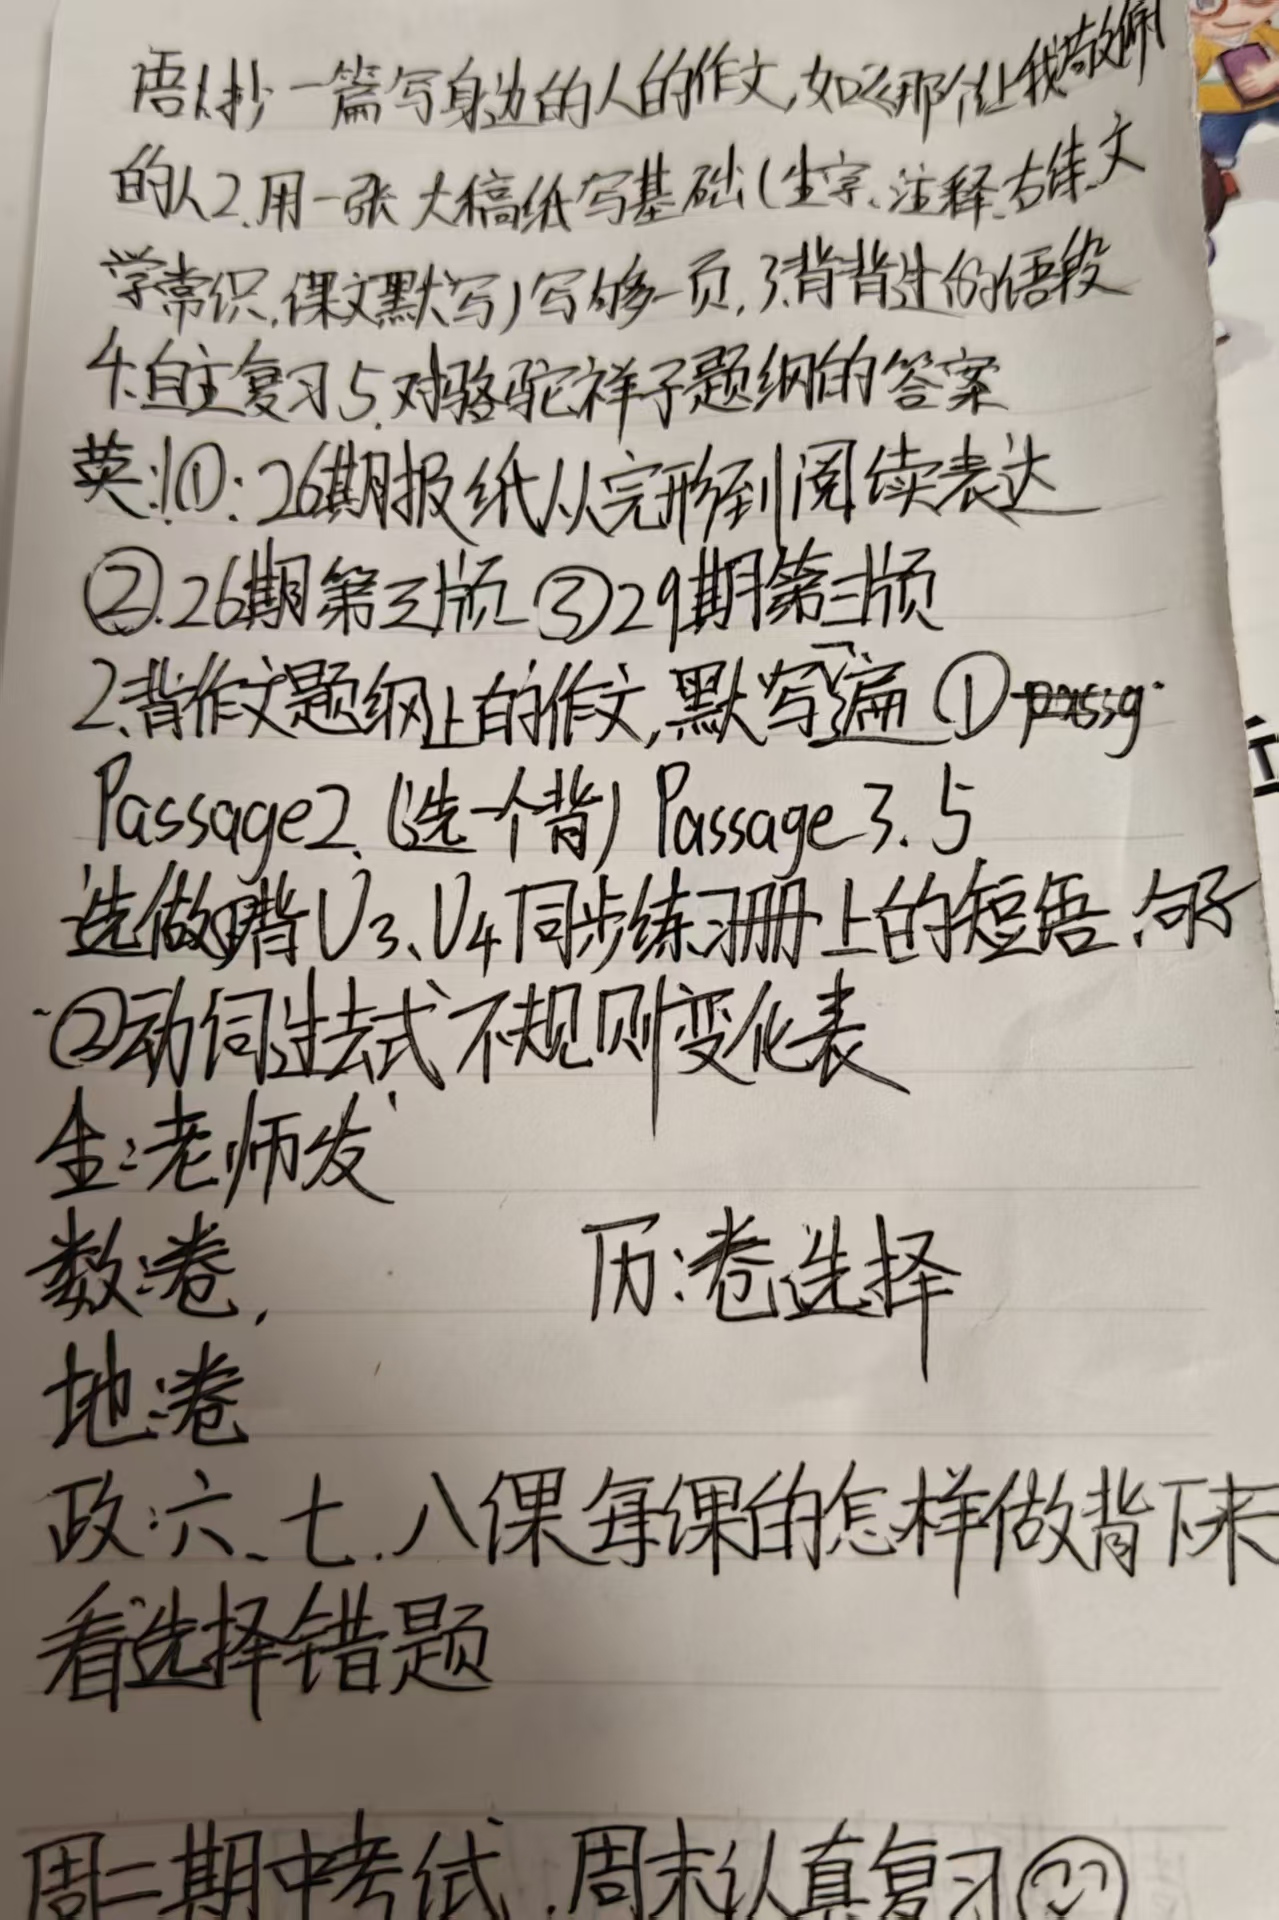 语:1.抄一篇写身边的人的作文,如《那个让我敬佩
的人2.用一张大稿纸写基础(生字、注释、古佳、文
学常识,课文默写)写够一页,3.背背过的语段
4.自主复习5.对骆驼祥子题纲的答案
英:1①:26期报纸从完形到阅读表达
②.26期第三版③29期第三版
2.背作文题纲上的作文,默写一遍①passg
Passage2.(选一个背)Passage3.5
选做:背U3、U4同步练习册上的短语、句子
②动词过去式不规则变化表
生:老师发
数:卷, 历:卷选择
地:卷
政:六、七.八课每课的怎样做背下来
看选择错题
周二期中考试.周末认真复习